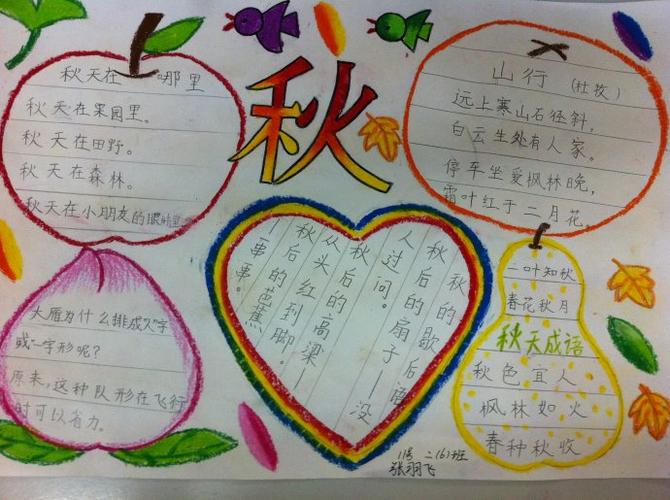 秋
秋天在哪里
秋天在果园里。
秋天在田野。
秋天在森林。
秋天在小朋友的眼睛里
山行 (杜牧)
远上寒山石径斜,
白云生处有人家。
停车坐爱枫林晚,
霜叶红于二月花。
大雁为什么排成人字
或一字形呢?
原来,这种队形在飞行
时可以省力。
秋的歇后语
秋后的扇子—没
人过问。
秋后的高粱—
从头红到脚。
秋后的芭蕉
—串串。
一叶知秋
春花秋月
秋天成语
秋色宜人
枫林如火
春种秋收
11号 二(6)班
张翊飞